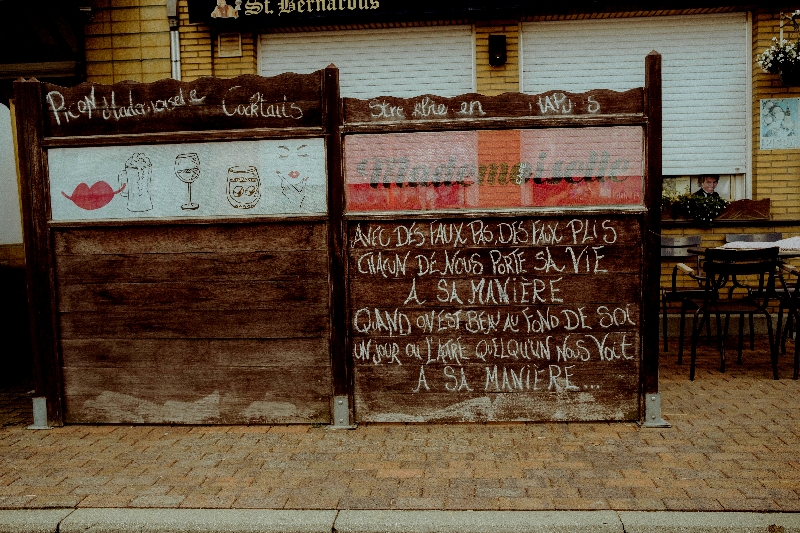 St. Bernardus
Picon Mademoiselle Cocktails
Mademoiselle
AVEC DES FAUX PAS, DES FAUX PLIS
CHACUN DE NOUS PORTE SA VIE
A SA MANIÈRE
QUAND ON EST BEAU AU FOND DE SOI
UN JOUR OU L'AUTRE QUELQU'UN NOUS VOIT
A SA MANIÈRE...